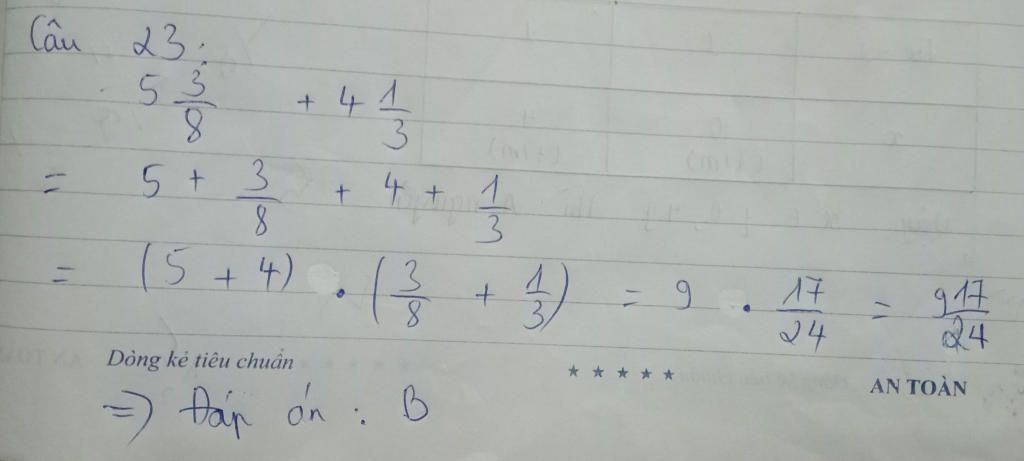 Câu 23:
5 3/8 + 4 1/3
= 5 + 3/8 + 4 + 1/3
= (5 + 4) . (3/8 + 1/3) = 9 . 17/24 = 9 17/24
Dòng kẻ tiêu chuẩn ★ ★ ★ ★ ★ AN TOÀN
=> Đáp án : B